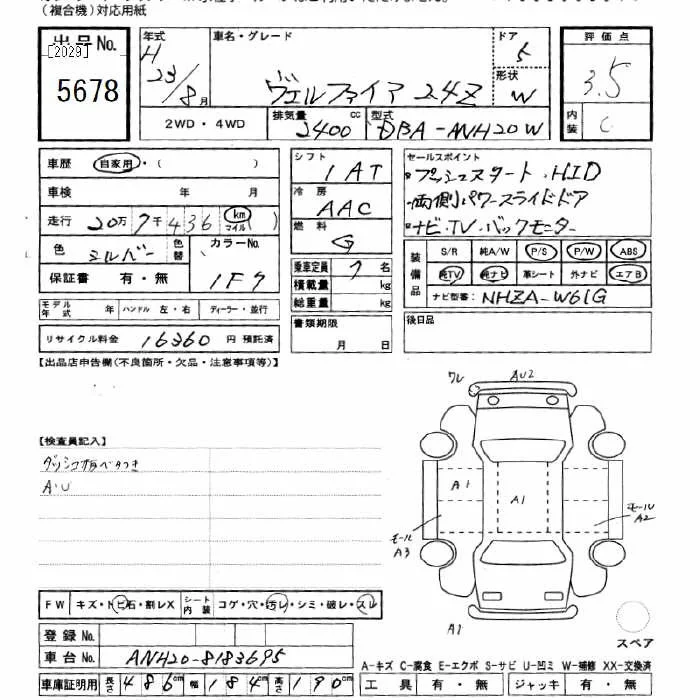 （複合機）対応用紙
出品No.
[2029]
5678
年式 H 23/8月
車名・グレード ヴェルファイア 2.4Z
ドア 5
形状 W
評価点 3.5
内装 C
2WD・4WD
排気量 2400 cc
型式 DBA-ANH20W
車歴 自家用・（　）
車検 年 月
走行 20万7千436 km マイル（　）
色 シルバー 色替 カラーNo. 1F7
保証書 有・無
モデル年式 年 ハンドル 左・右 ディーラー・並行
リサイクル料金 16360 円 預託済
シフト 1AT
冷房 AAC
燃料 G
乗車定員 7 名
積載量 kg
総重量 kg
書類期限 月 日
セールスポイント
・プッシュスタート・HID
・両側パワースライドドア
・ナビ・TV・バックモニター
装備品 S/R 純A/W P/S P/W ABS
純TV 純ナビ 革シート 外ナビ エアB
ナビ型番 NHZA-W61G
後日品
【出品店申告欄（不良箇所・欠品・注意事項等）】
【検査員記入】
ダッシュ板ベタつき
A・U
ワレ AU2
A1 A1
モール A2
モール A3
A1
スペア
FW キズ・トビ石・割レX シート内装 コゲ・穴・汚レ・シミ・破レ・スレ
登録No.
車台No. ANH20-8183695
車庫証明用 長さ 486cm 幅 184cm 高さ 190cm
A-キズ C-腐食 E-エクボ S-サビ U-凹ミ W-補修 XX-交換済
工具 有・無 ジャッキ 有・無